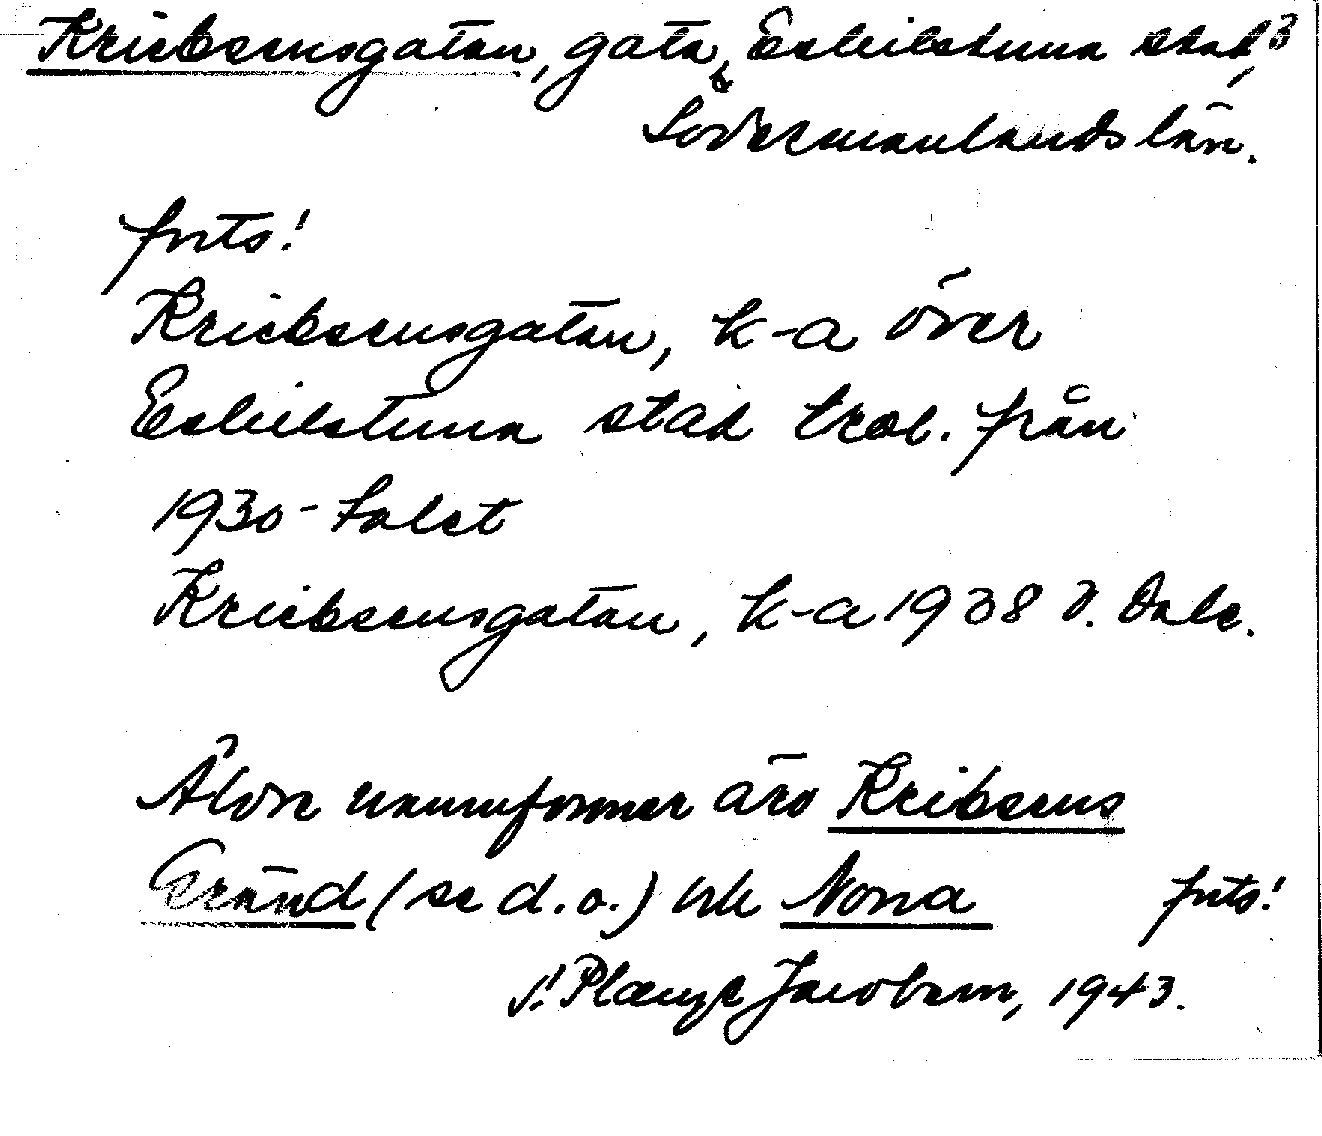 Kriebsensgatan, gata, Eskilstuna stad, 3
Södermanlands län.
forts!
Kriebsensgatan, k-a över
Eskilstuna stad trol. från
1930-talet
Kriebsensgatan, k-a 1938 J. Dale.
Äldre namnformer äro Kribsens
Gränd (se d.o.) och Norra forts!
Jacobson, 1943.